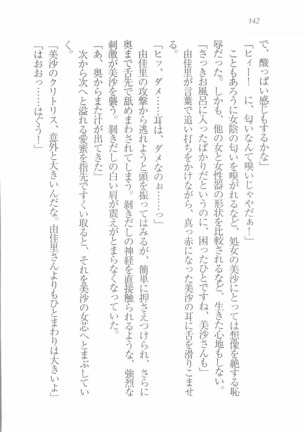 142
で、酸っぱい感じもするかな」
「ヒィー！　に、匂いなんて嗅いじゃやだぁ！」
こともあろうに女陰の匂いを嗅がれるなど、処女の美沙にとっては想像を絶する恥
辱だった。しかも、他の女と女性器の形状を比較されるなど、生きた心地もしない。
「さっきお風呂に入ったばかりだというのに、困ったひとですね、美沙さんも」
由佳里が言葉で追い打ちをかけながら、真っ赤になった美沙の耳に舌を滑りこませ
る。
「ヒッ、ダメ……耳は、ダメなのぉ……っ」
由佳里の攻撃から逃れようと頭を振ってはみるが、簡単に押さえつけられ、さらに
奥まで舌先で舐めまわされてしまう。剝きだしの神経を直接触られるような、強烈な
刺激が美沙を襲う。剝きだしの白い肩が震えがとまらなくなっていた。
「あ、奥からまた汁が出てきた」
次から次へと溢れる愛蜜を指先ですくい取ると、それを美沙の女芯へとまぶしてい
く。
「美沙のクリトリス、意外と大きいんだな。由佳里さんよりもひとまわりは大きいよ」
「はおお……はぐうー！」